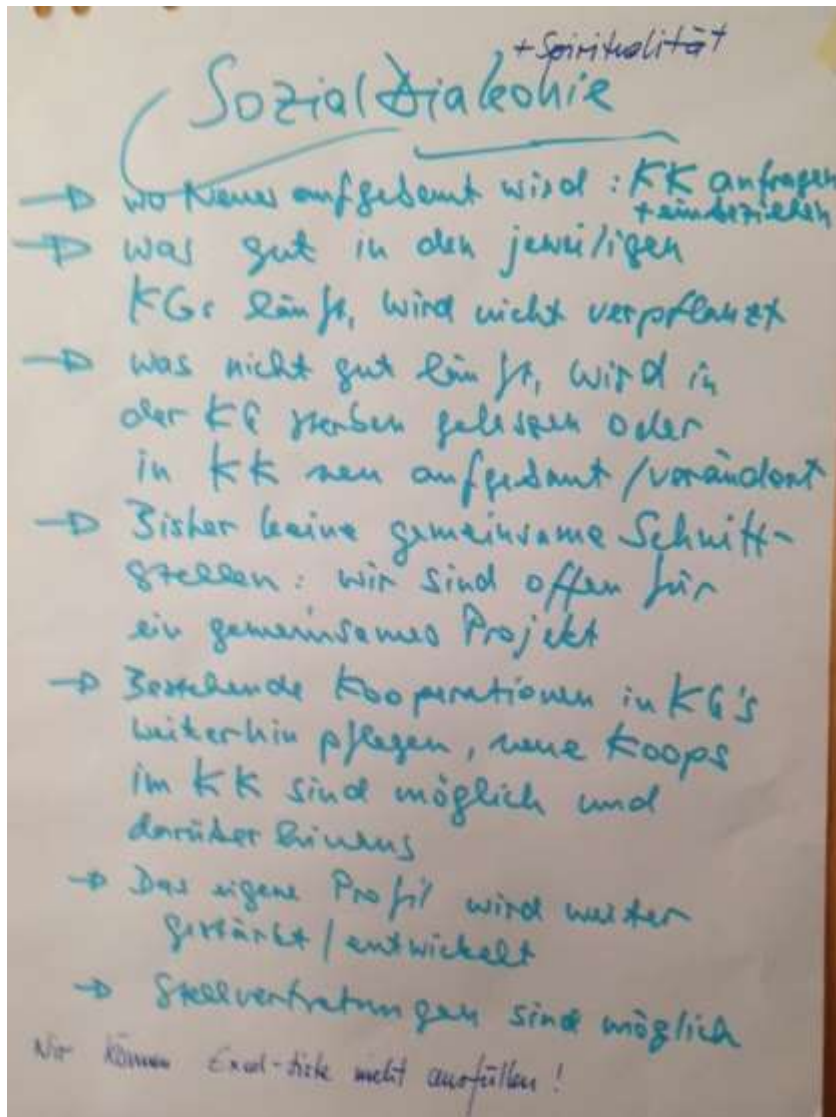 + Spiritualität
SozialDiakonie
→ wo Neues aufgebaut wird : KK anfragen
+ einbeziehen
→ was gut in den jeweiligen
KGs läuft, wird nicht verpflanzt
→ was nicht gut läuft, wird in
der KG sterben gelassen oder
in KK neu aufgebaut / verändert
→ Bisher keine gemeinsame Schnitt-
stellen : wir sind offen für
ein gemeinsames Projekt
→ Bestehende Kooperationen in KG's
weiterhin pflegen, neue Koops
im KK sind möglich und
darüber hinaus
→ Das eigene Profil wird weiter
gestärkt / entwickelt
→ Stellvertretungen sind möglich
Wir können Exel-liste nicht ausfüllen !